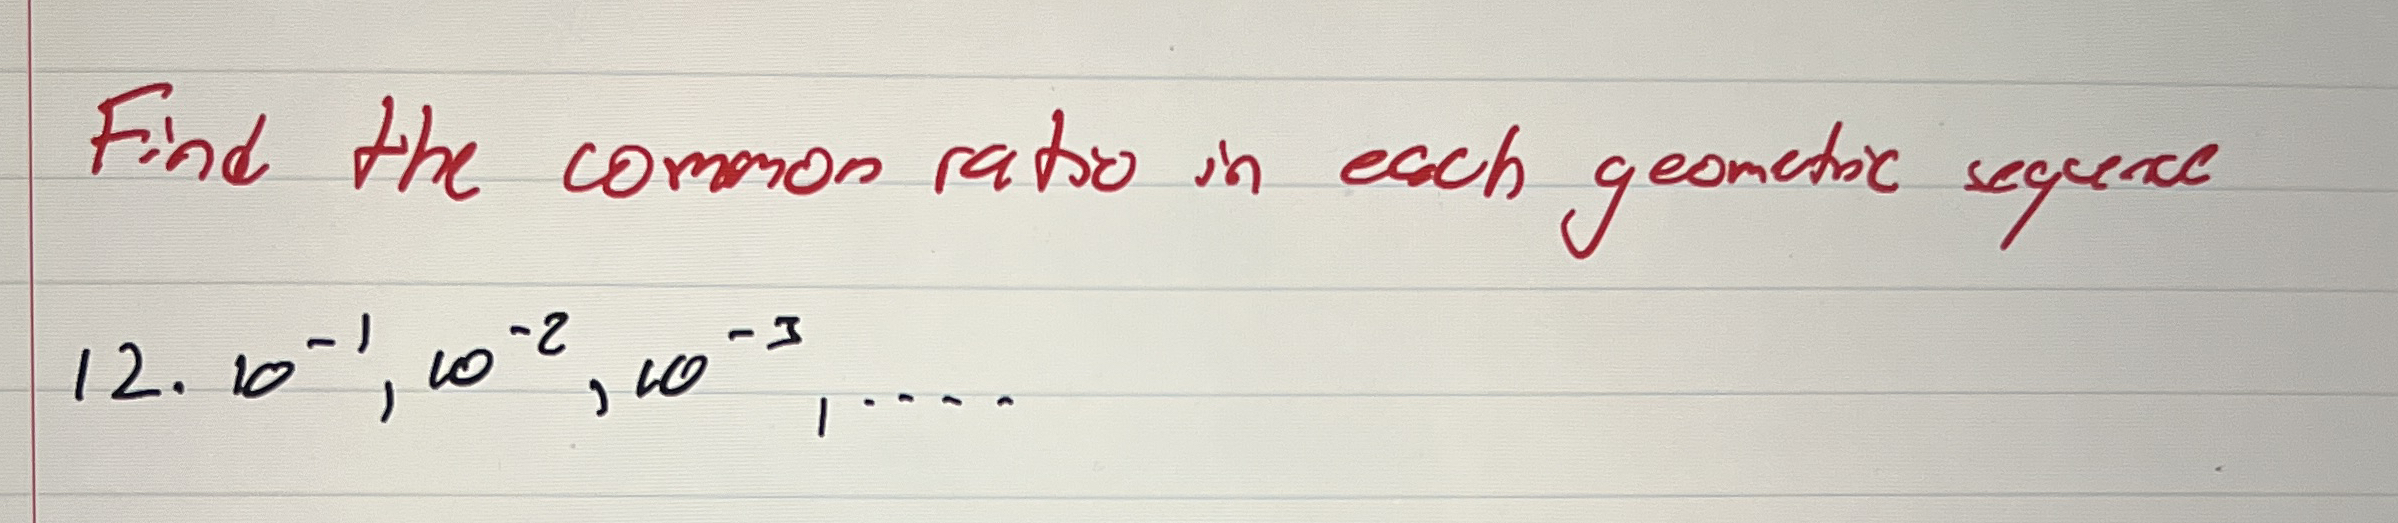 Find the common ratio in each geometric sequence
12. 10⁻¹, 10⁻², 10⁻³, .....